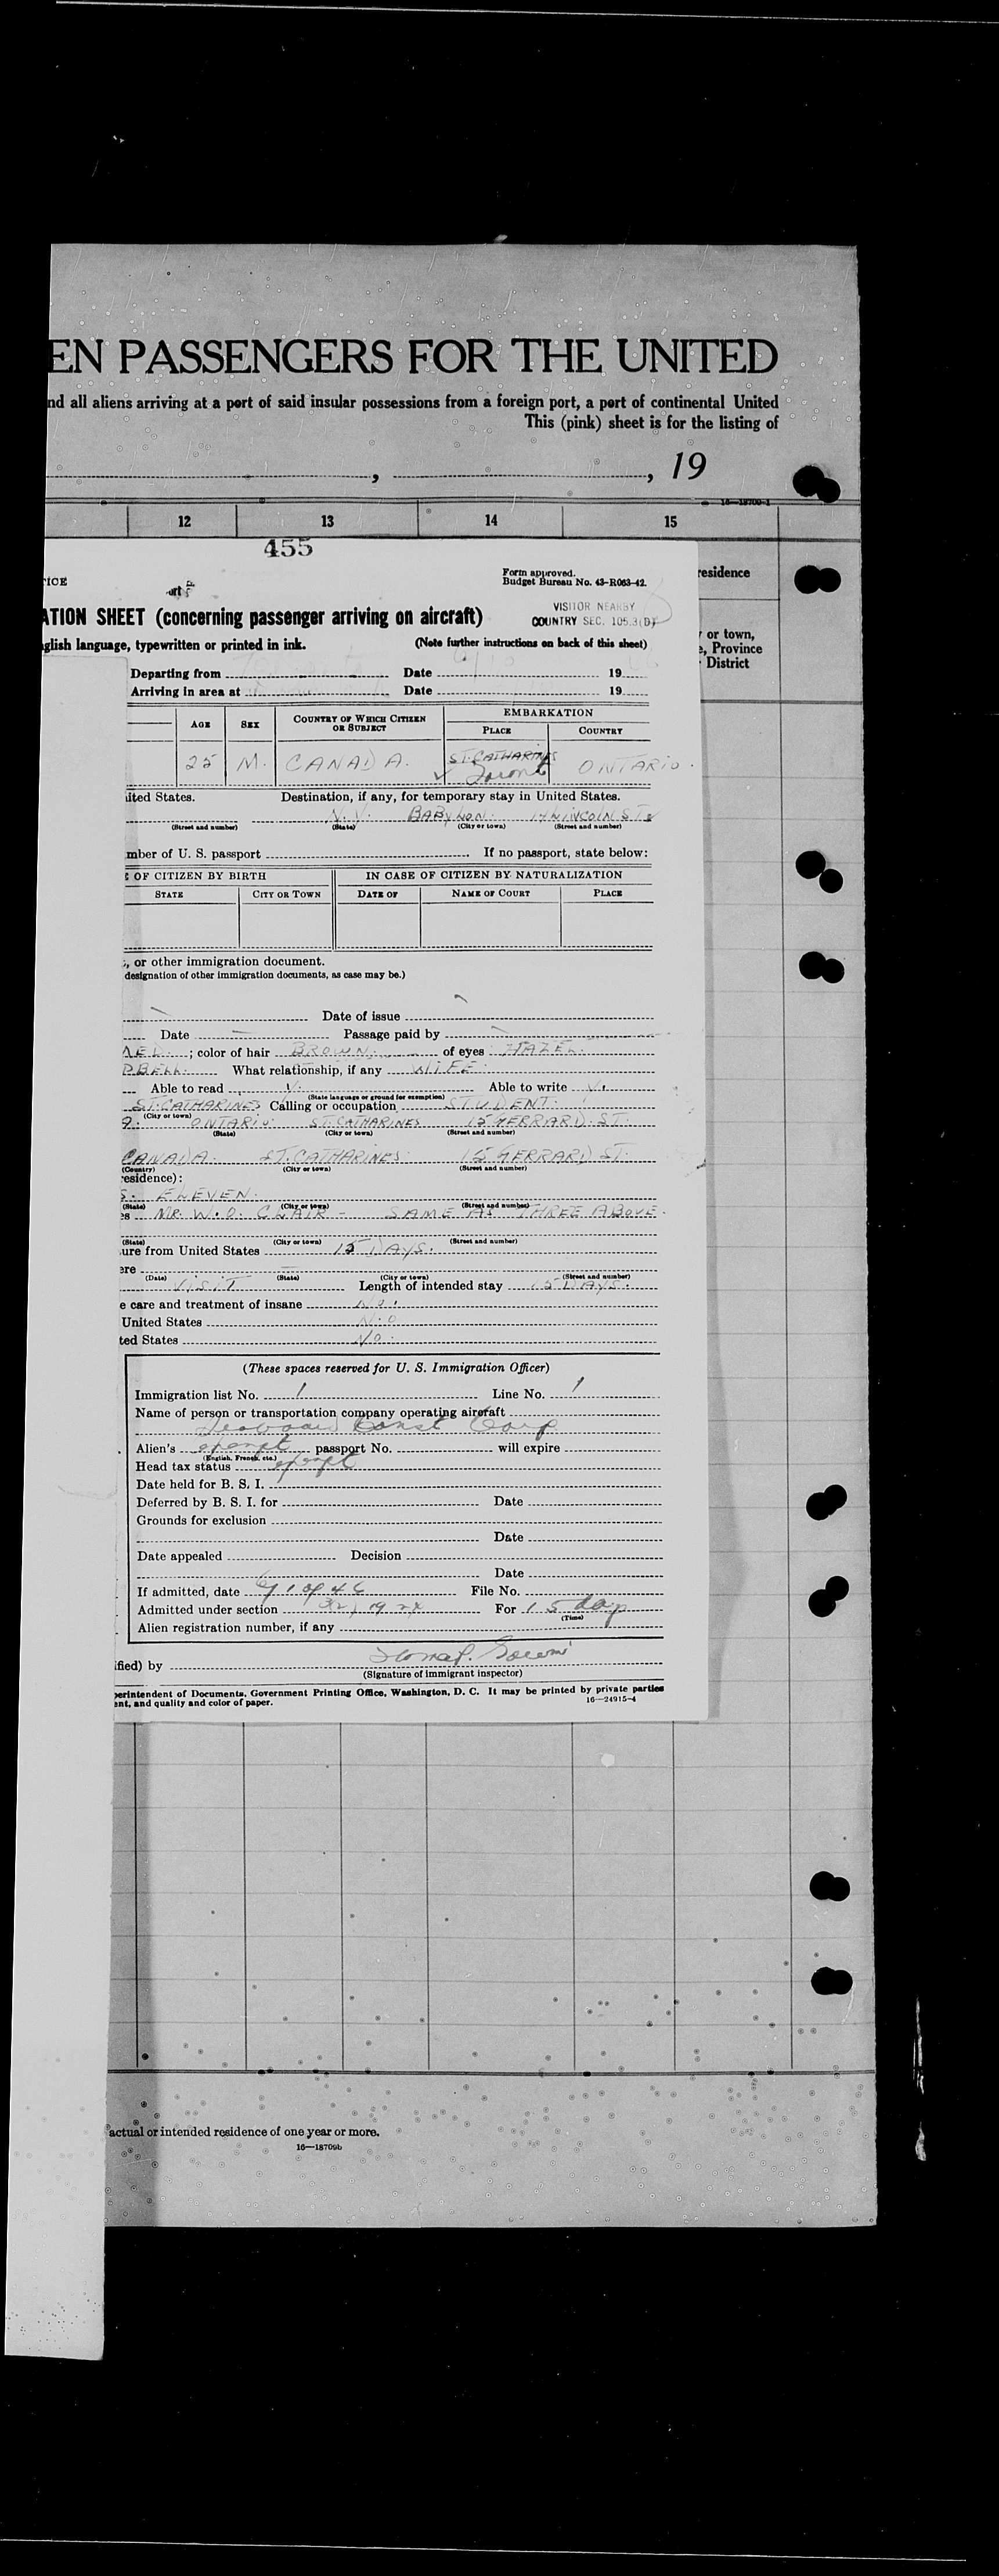 EN PASSENGERS FOR THE UNITED
nd all aliens arriving at a port of said insular possessions from a foreign port, a port of continental United
This (pink) sheet is for the listing of
, , 19
16—18709-1
12 13 14 15
455
ICE
Form approved.
Budget Bureau No. 43-R063-42.
esidence
VISITOR NEARBY
COUNTRY SEC. 105.3(D)
ATION SHEET (concerning passenger arriving on aircraft)
glish language, typewritten or printed in ink. (Note further instructions on back of this sheet)
or town,
e, Province
District
Departing from Date 19
Arriving in area at Date 19
AGE SEX COUNTRY OF WHICH CITIZEN OR SUBJECT EMBARKATION
PLACE COUNTRY
25 M. CANADA. ST. CATHARINES ONTARIO.
ited States. Destination, if any, for temporary stay in United States.
N.Y. BABYLON. LINCOLN ST.
(Street and number) (State) (City or town) (Street and number)
mber of U. S. passport If no passport, state below:
OF CITIZEN BY BIRTH IN CASE OF CITIZEN BY NATURALIZATION
STATE CITY OR TOWN DATE OF NAME OF COURT PLACE
, or other immigration document.
designation of other immigration documents, as case may be.)
Date of issue
Date Passage paid by
; color of hair BROWN. of eyes HAZEL.
PBELL. What relationship, if any WIFE.
Able to read Able to write
(State language or ground for exemption)
ST. CATHARINES Calling or occupation STUDENT.
(City or town)
ONTARIO. ST. CATHARINES 15 GERRARD. ST.
(State) (City or town) (Street and number)
CANADA. ST. CATHARINES. 15 GERRARD ST.
(Country) (City or town) (Street and number)
residence):
S. ELEVEN.
(State) (City or town) (Street and number)
es MR. W.O. CLAIR - SAME AS THREE ABOVE.
(State) (City or town) (Street and number)
ure from United States 15 DAYS.
ere
(Date) (State) (City or town) (Street and number)
VISIT Length of intended stay 15 DAYS.
e care and treatment of insane NO.
United States NO
ted States NO.
(These spaces reserved for U. S. Immigration Officer)
Immigration list No. 1 Line No. 1
Name of person or transportation company operating aircraft
Const Corp
Alien's exempt passport No. will expire
(English, French, etc.)
Head tax status exempt
Date held for B. S. I.
Deferred by B. S. I. for Date
Grounds for exclusion
Date
Date appealed Decision
Date
If admitted, date File No.
Admitted under section 3(2) 1924 For 15 day
(Time)
Alien registration number, if any
ified) by
(Signature of immigrant inspector)
perintendent of Documents, Government Printing Office, Washington, D. C. It may be printed by private parties
ent, and quality and color of paper. 16—24915-4
actual or intended residence of one year or more.
16—18709b